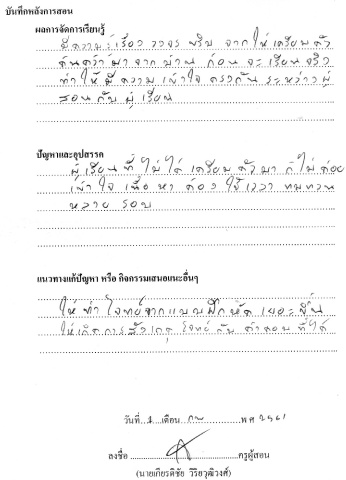 บันทึกหลังการสอน
ผลการจัดการเรียนรู้
มีความรู้เรื่อง วงจร พริบ จากให้เตรียมตัว
ค้นคว้ามาจากบ้าน ก่อนจะเรียนจริง
ทำให้มีความเข้าใจตรงกันระหว่างผู้
สอนกับผู้เรียน
ปัญหาและอุปสรรค
ผู้เรียนที่ไม่ได้เตรียมตัวมาก็ไม่ค่อย
เข้าใจเนื้อหาต้องใช้เวลาทบทวน
หลายรอบ
แนวทางแก้ปัญหา หรือ กิจกรรมเสนอแนะอื่นๆ
ให้ทำโจทย์จากแบบฝึกหัดเยอะขึ้น
ให้เกิดการสังเกตุโจทย์กับคำตอบที่ได้
วันที่ 1 เดือน กพ พ.ศ 2561
ลงชื่อ ครูผู้สอน
(นายเกียรติชัย วิริยวุฒิวงศ์)